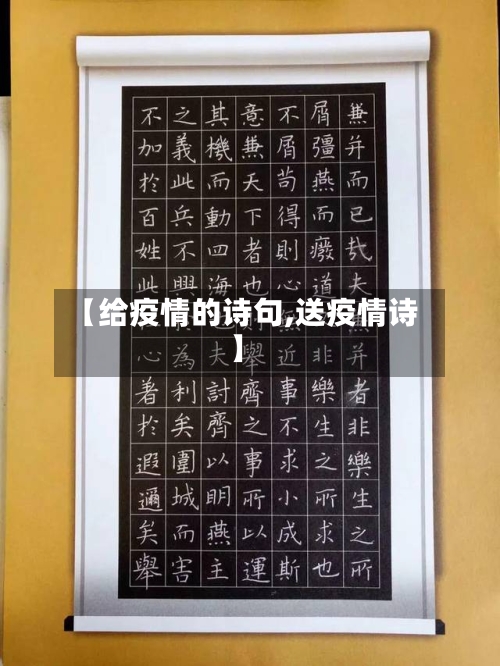 兼并而已哉夫兼并者非樂生之所
屑彊燕而廢道非樂生之所求也
不屑苟得則心無近事不求小成斯
意兼天下者也則舉齊之事所以運
其機而動四海夫討齊以明燕主
之義此兵不興為利矣圍城而害
不加於百姓此心著於遐邇矣舉
【给疫情的诗句,送疫情诗
】